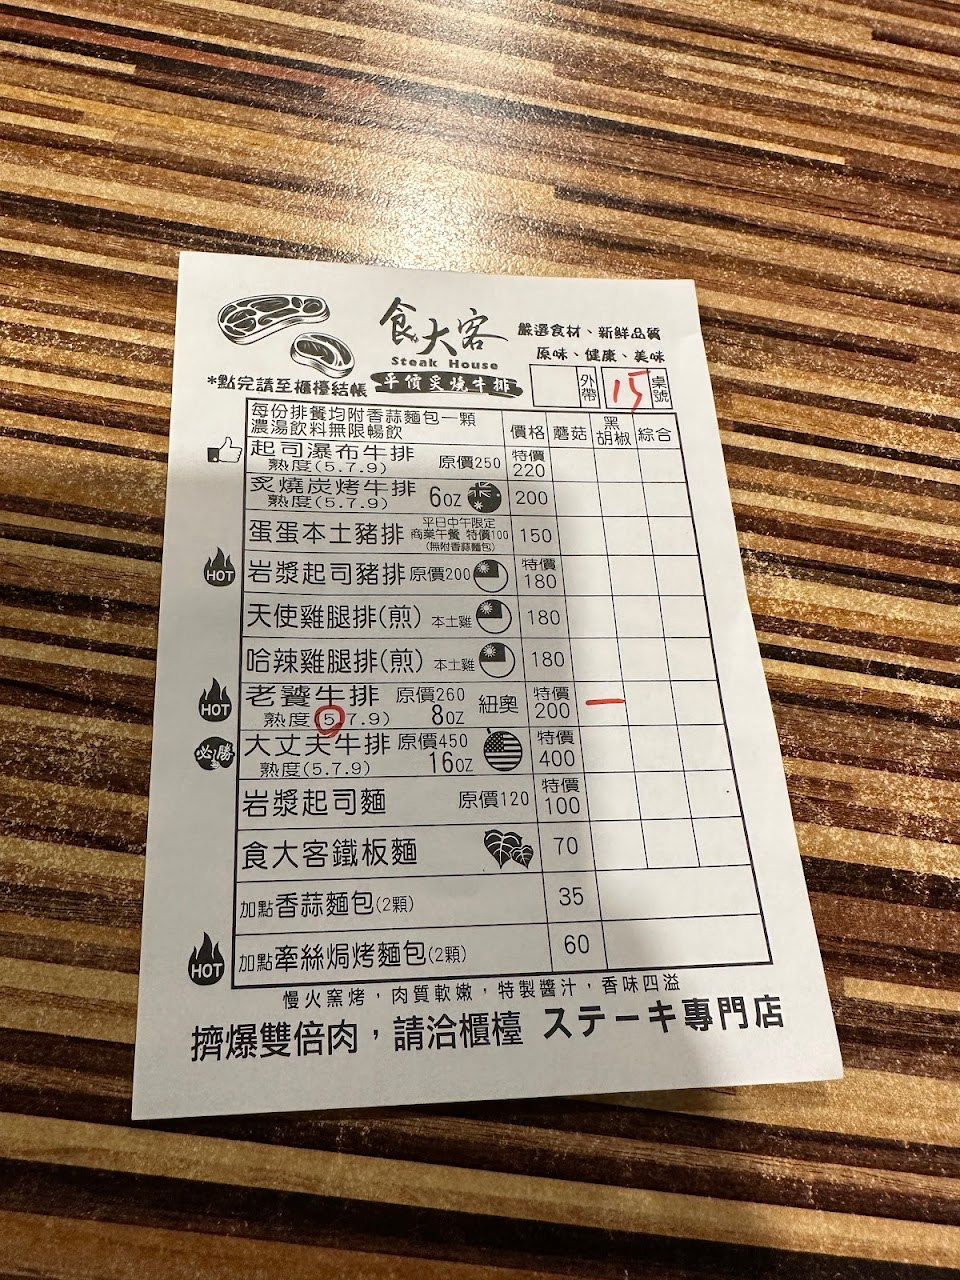 食大客
Steak House
平價炙燒牛排
嚴選食材、新鮮品質
原味、健康、美味
*點完請至櫃檯結帳
外帶 15 桌號
每份排餐均附香蒜麵包一顆
濃湯飲料無限暢飲
價格 蘑菇 黑胡椒 綜合
起司瀑布牛排 原價250 特價220
熟度(5.7.9)
炙燒炭烤牛排 6oz 200
熟度(5.7.9)
蛋蛋本土豬排 平日中午限定 商業午餐 特價100 (無附香蒜麵包) 150
HOT 岩漿起司豬排 原價200 特價180
天使雞腿排(煎) 本土雞 180
哈辣雞腿排(煎) 本土雞 180
HOT 老饕牛排 原價260 8oz 紐奧 特價200 一
熟度(5.7.9)
必勝 大丈夫牛排 原價450 16oz 特價400
熟度(5.7.9)
岩漿起司麵 原價120 特價100
食大客鐵板麵 70
加點香蒜麵包(2顆) 35
HOT 加點牽絲焗烤麵包(2顆) 60
慢火窯烤，肉質軟嫩，特製醬汁，香味四溢
擠爆雙倍肉，請洽櫃檯 ステーキ專門店